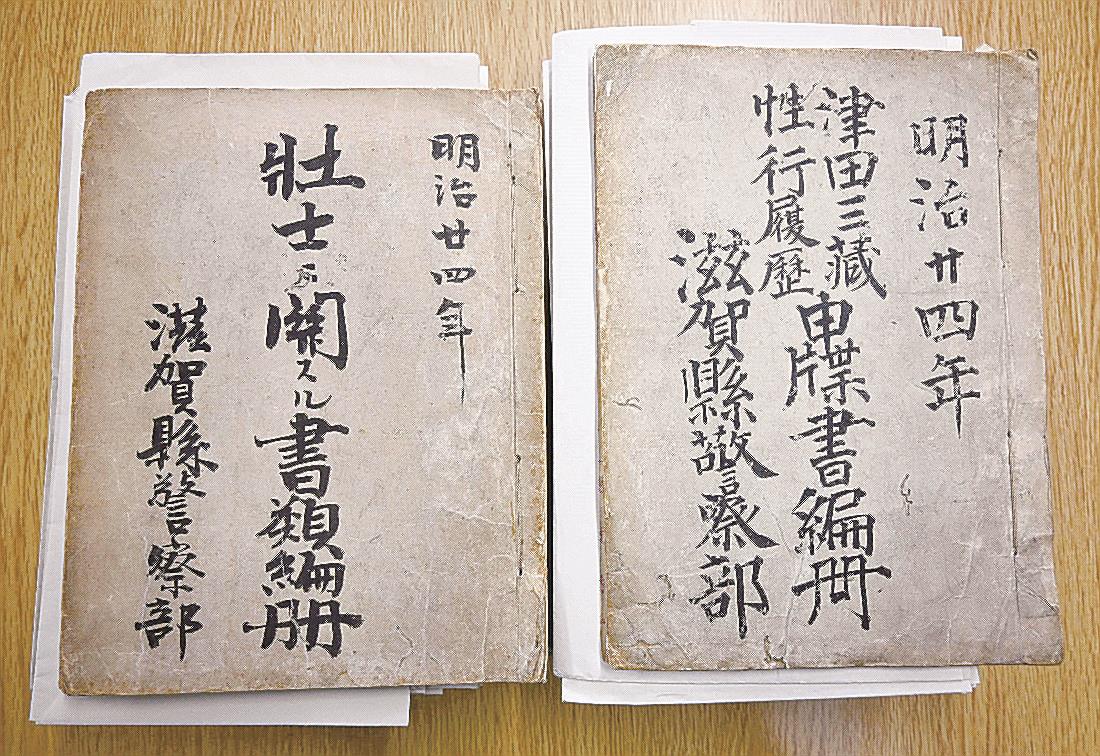 明治廿四年
津田三藏
性行履歷
申牒書編冊
滋賀縣警察部
明治廿四年
壯士ニ関スル書類編冊
滋賀縣警察部